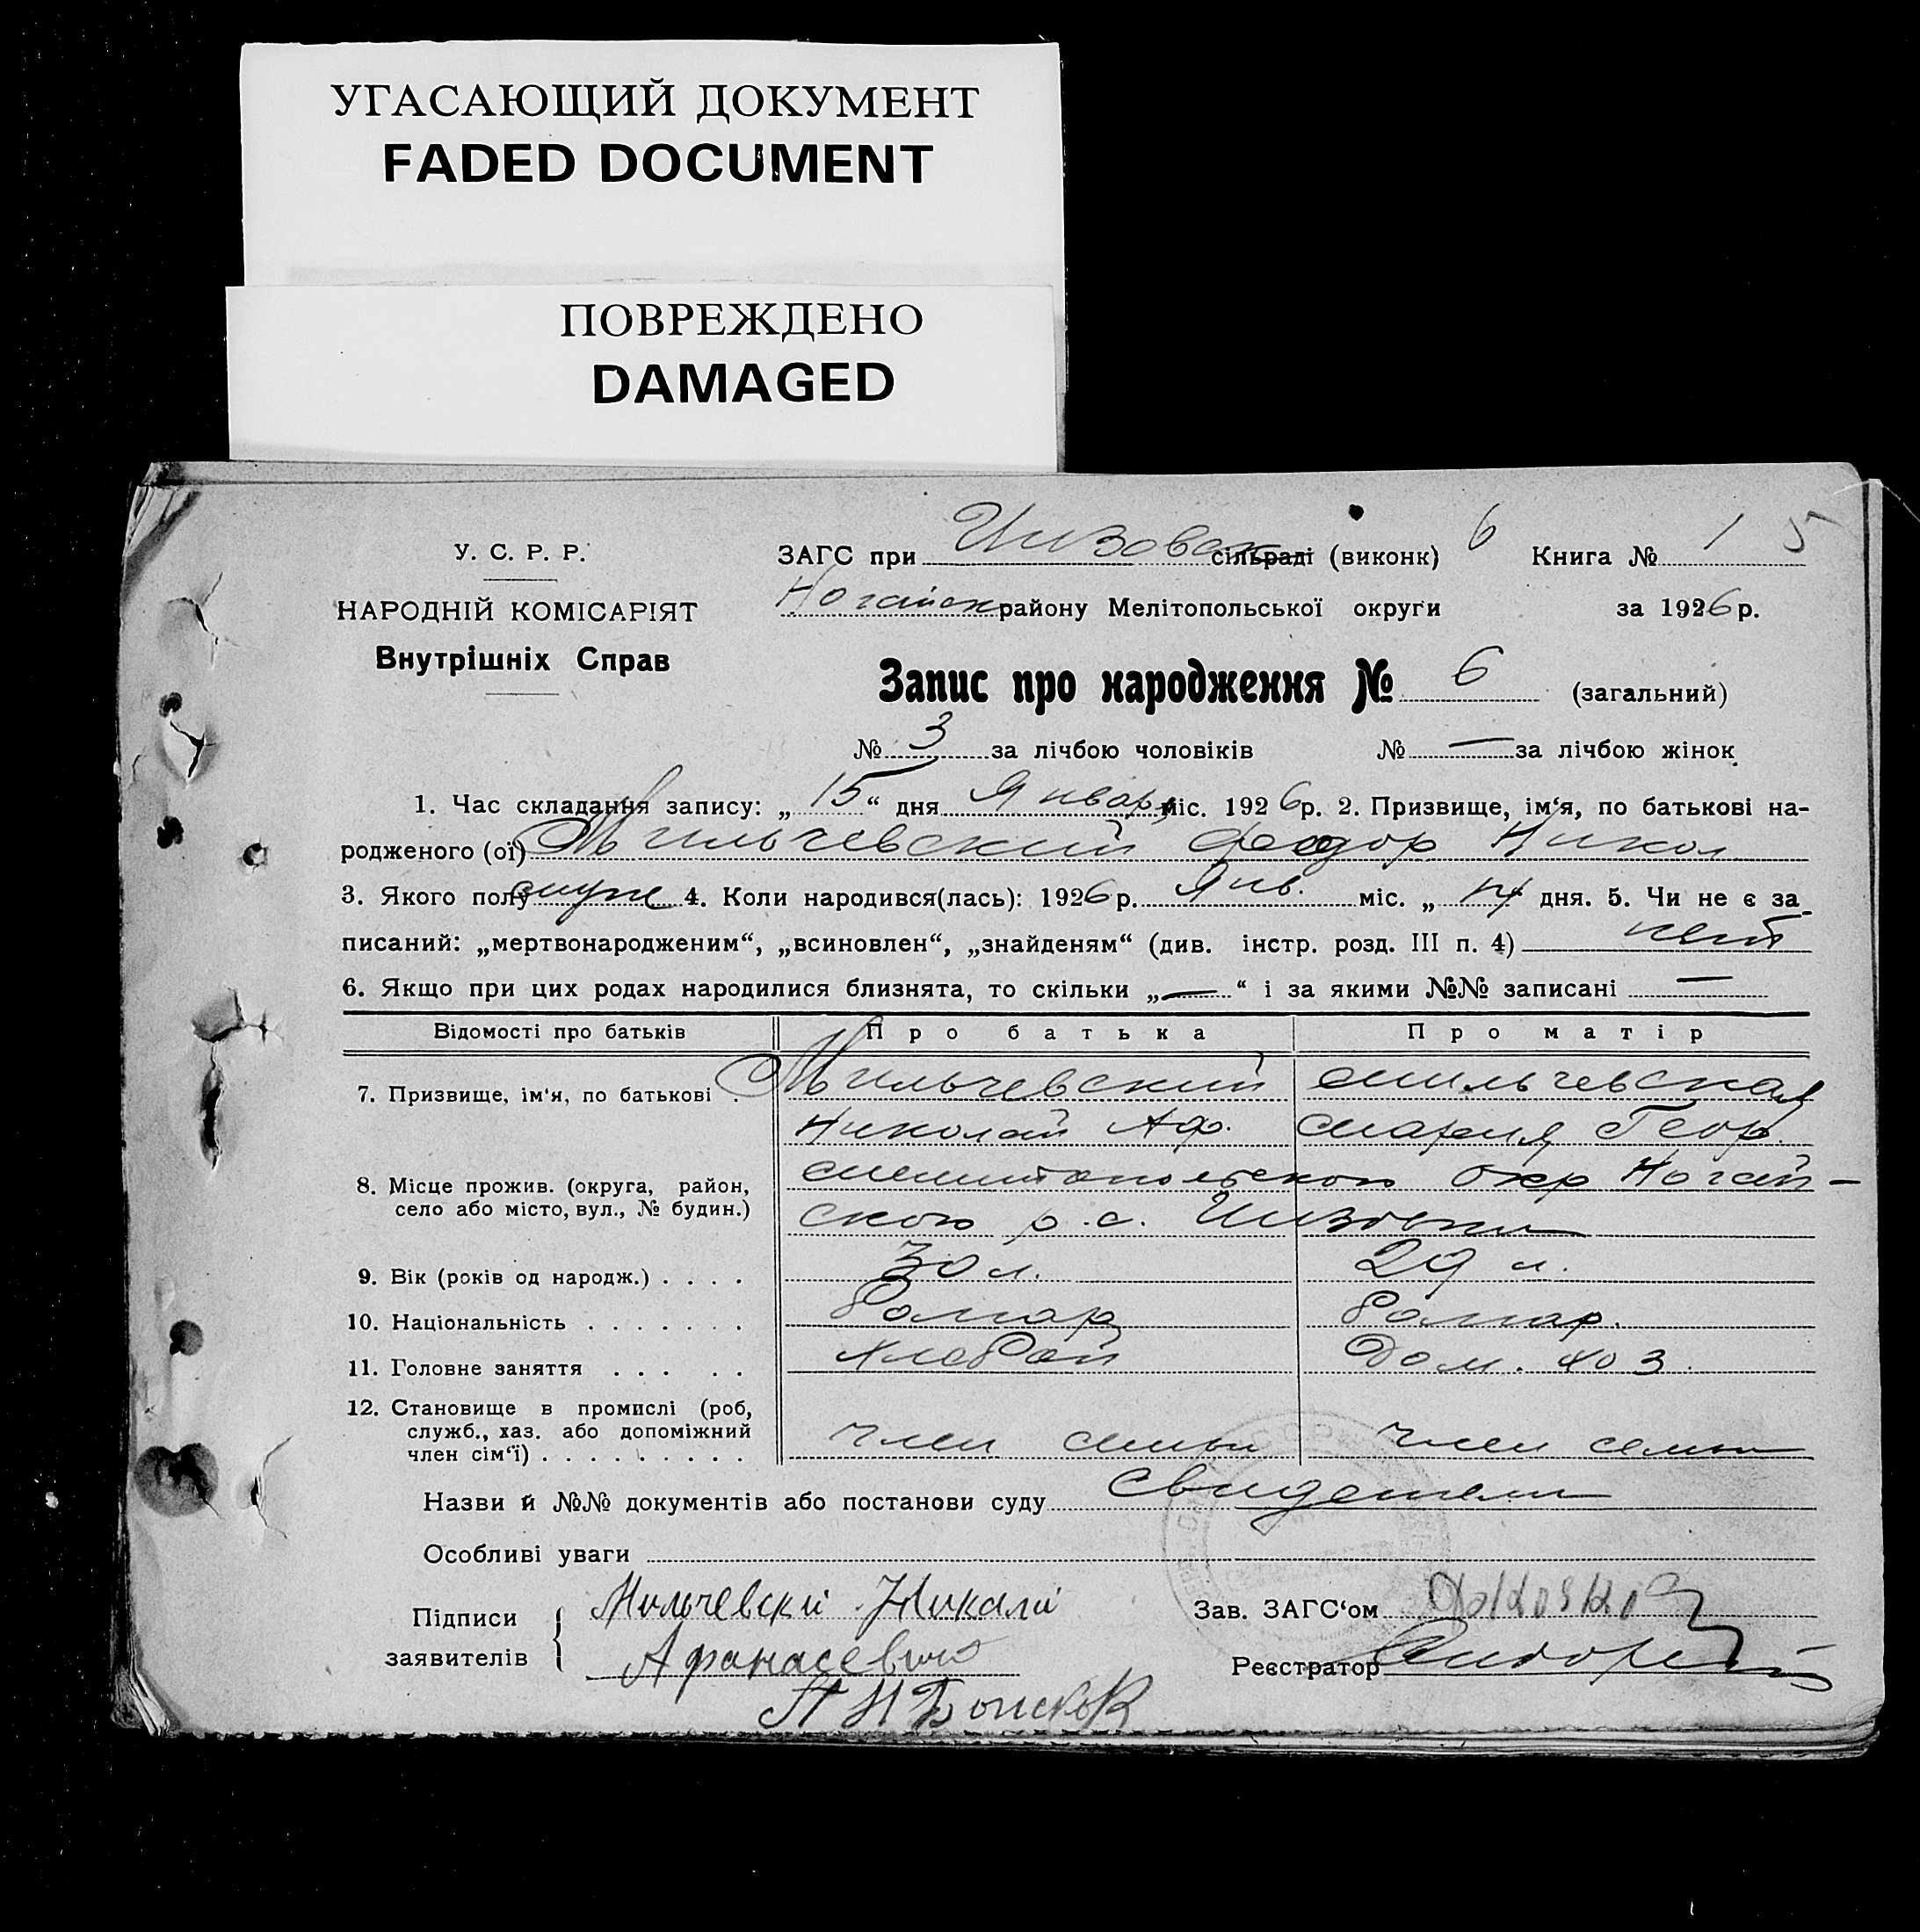 УГАСАЮЩИЙ ДОКУМЕНТ
FADED DOCUMENT
ПОВРЕЖДЕНО
DAMAGED
У. С. Р. Р.
НАРОДНІЙ КОМІСАРІЯТ
Внутрішніх Справ
ЗАГС при сільраді (виконк) 6 Книга № 1 5
Ногайск району Мелітопольської округи за 1926 р.
Запис про народження № 6 (загальний)
№ 3 за лічбою чоловіків № — за лічбою жінок
1. Час складання запису: „ 15 “ дня Января міс. 1926 р. 2. Призвище, ім‘я, по батькові на-
родженого (ої) Мильчевский Феодор Никол
3. Якого полу муж 4. Коли народився(лась): 1926 р. Янв. міс. „ 14 дня. 5. Чи не є за
писаний: „мертвонародженим“, „всиновлен“, „знайденям“ (див. інстр. розд. III п. 4) нет
6. Якщо при цих родах народилися близнята, то скільки „—“ і за якими №№ записані —
Відомості про батьків Про батька Про матір
7. Призвище, ім‘я, по батькові . Мильчевский Мильчевская
Николай Аф. Мария Геор.
8. Місце прожив. (округа, район, село або місто, вул., № будин.) Мелитопольского Окр Ногай-
ского р. с.
9. Вік (років од народж.) . . . . 30 л. 29 л.
10. Національність . . . . . . . болгар болгар.
11. Головне заняття . . . . . Хлебоп Дом. хоз.
12. Становище в промислі (роб,
служб., хаз. або допоміжний
член сім‘ї) . . . . . . . . . член семьи член семьи
Назви й №№ документів або постанови суду Свидетели
Особливі уваги
Підписи заявителів Мильчевски Никалай
Афанасевич
Зав. ЗАГС‘ом
Реєстратор